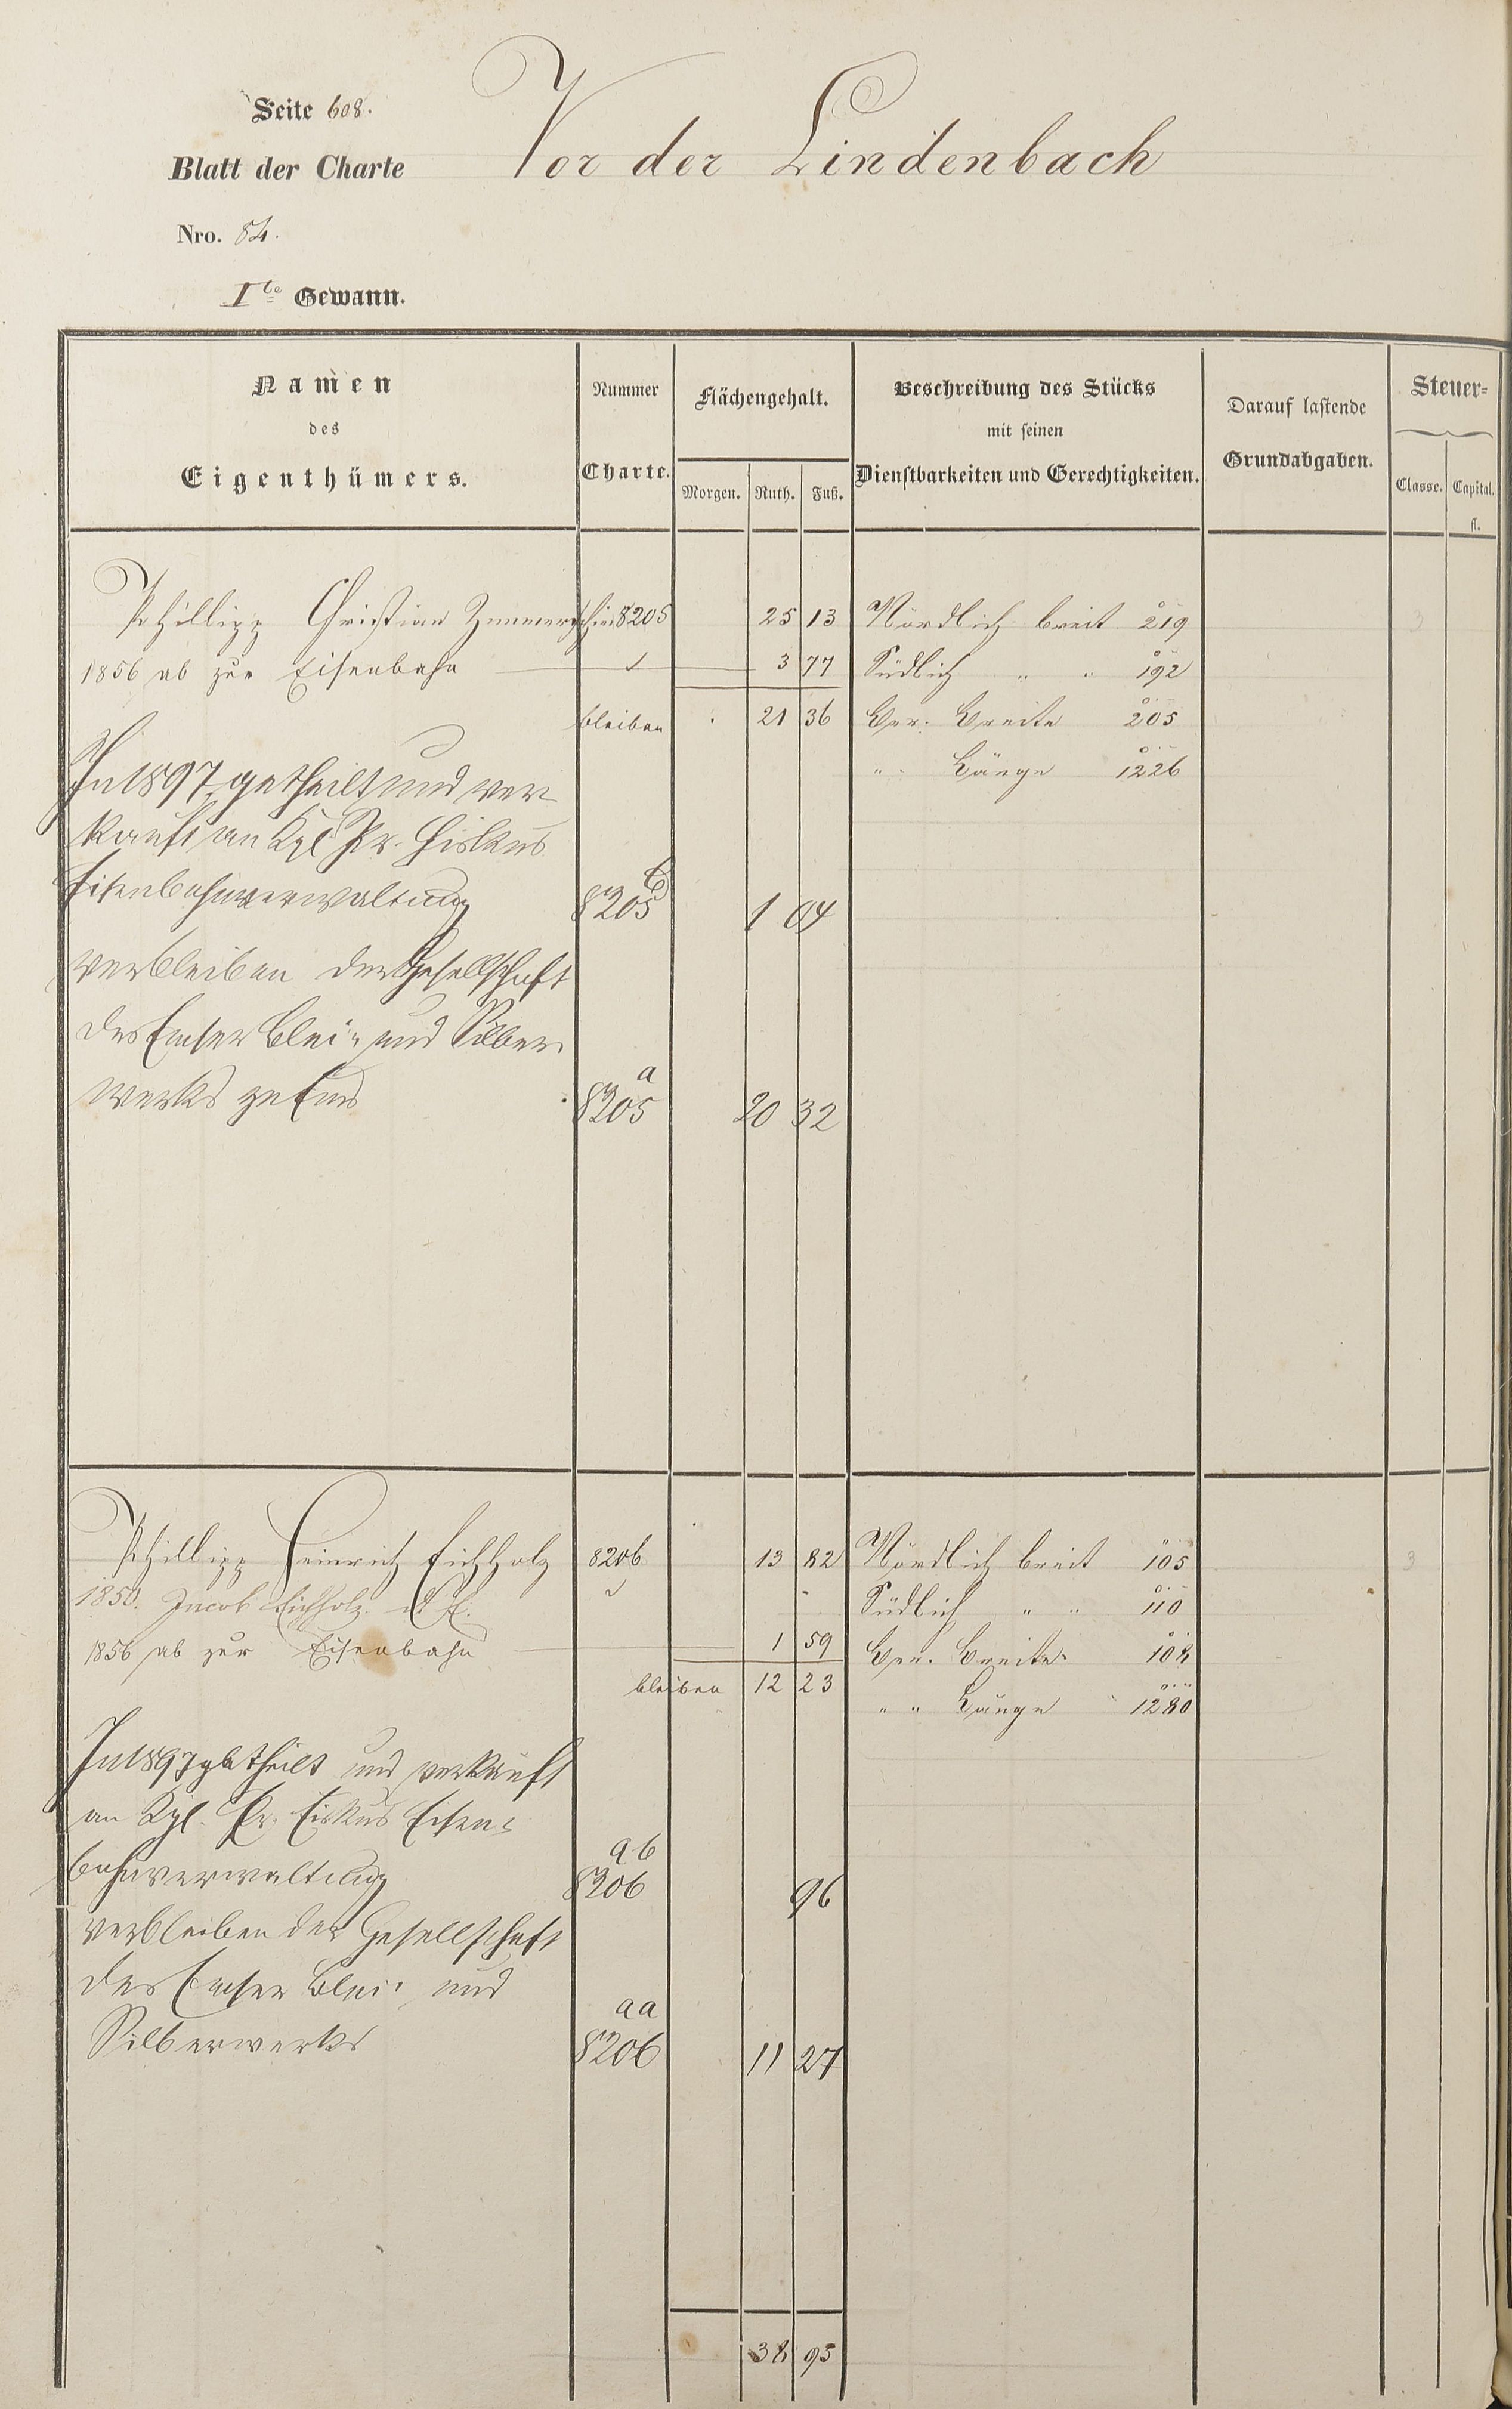 Seite 608.
Blatt der Charte
Vor der Lindenbach
Nro. 84.
Ite Gewann.
Namen des Eigenthümers.
Nummer Charte.
Flächengehalt.
Morgen. Ruth. Fuß.
Beschreibung des Stücks
mit seinen
Dienstbarkeiten und Gerechtigkeiten.
Darauf lastende
Grundabgaben.
Steuer=
Classe. Capital.
fl.
Philipp Christian 8205 25 13 Nördlich breit 219 3
1856 ab zur Eisenbahn 3 77 Südlich " " 192
bleiben 21 36 Ver. Breite 205
" Länge 1226
In 1897 getheilt und ver
kauft an Kgl. Pr. Fiskus
Eisenbahnverwaltung 8205 b 1 04
verbleiben der Gesellschaft
des Emser Blei- und Silber-
werks zu Ems 8205 a 20 32
Phillipp Heinrich Eichholz 8206 13 82 Nördlich breit 105 3
1850. Jacob Eichholz Südlich " " 110
1856 ab zur Eisenbahn 1 59 Ver. Breite 108
bleiben 12 23 " " Länge 1280
In 1897 getheilt und verkauft
an Kgl. Pr. Fiskus Eisen-
bahnverwaltung 8206 ab 96
verbleiben der Gesellschaft
des Emser Blei- und
Silberwerks 8206 aa 11 27
38 95